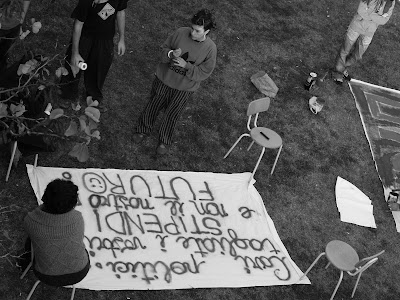 Cari politici,
tagliate i vostri
STIPENDI
e non il nostro
FUTURO